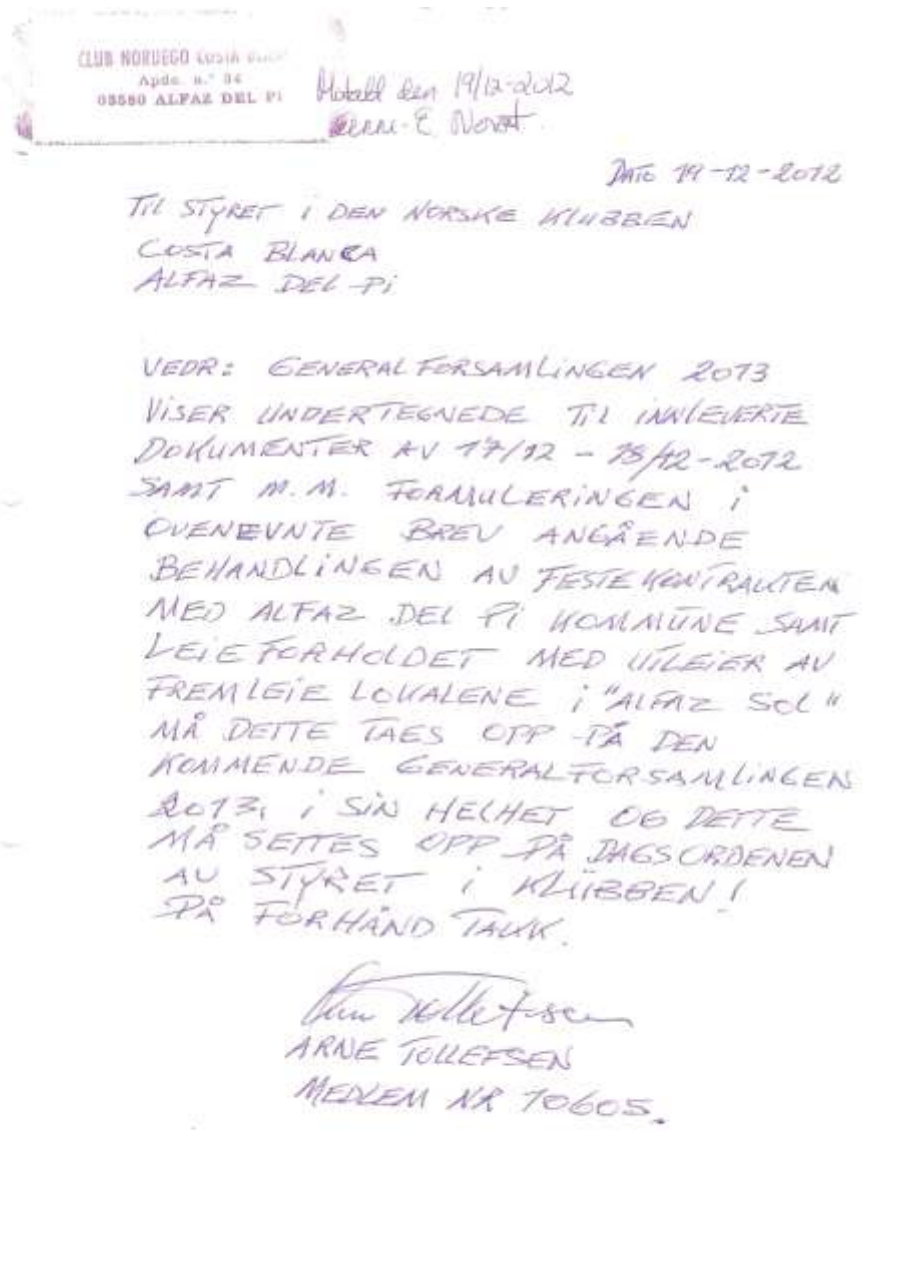 CLUB NORUEGO COSTA
Apdo. n.° 34
03580 ALFAZ DEL PI
Motatt den 19/12-2012
DATO 19-12-2012
TIL STYRET i DEN NORSKE KLUBBEN
COSTA BLANCA
ALFAZ DEL Pi
VEDR: GENERALFORSAMLINGEN 2013
VISER UNDERTEGNEDE TIL INNLEVERTE
DOKUMENTER AV 17/12 - 18/12-2012
SAMT M.M. FORMULERINGEN i
OVENEVNTE BREV ANGÅENDE
BEHANDLINGEN AV FESTEKONTRAKTEN
MED ALFAZ DEL Pi KOMMUNE SAMT
LEIEFORHOLDET MED UTLEIER AV
FREMLEIE LOKALENE i "ALFAZ SOL"
MÅ DETTE TAES OPP PÅ DEN
KOMMENDE GENERALFORSAMLINGEN
2013, i SIN HELHET OG DETTE
MÅ SETTES OPP PÅ DAGSORDENEN
AV STYRET i KLUBBEN!
PÅ FORHÅND TAKK.
Arne Tollefsen
ARNE TOLLEFSEN
MEDLEM NR 10605.